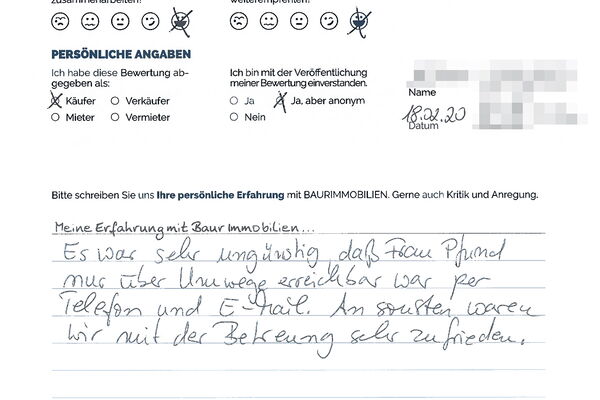 zusammenarbeiten?
weiterempfehlen?
PERSÖNLICHE ANGABEN
Ich habe diese Bewertung ab-
gegeben als:
Käufer Verkäufer
Mieter Vermieter
Ich bin mit der Veröffentlichung
meiner Bewertung einverstanden.
Ja Ja, aber anonym
Nein
Name
18.02.20
Datum
Bitte schreiben Sie uns Ihre persönliche Erfahrung mit BAURIMMOBILIEN. Gerne auch Kritik und Anregung.
Meine Erfahrung mit Baur Immobilien...
Es war sehr ungünstig, daß Frau Pfund
nur über Umwege erreichbar war per
Telefon und E-Mail. An sonsten waren
wir mit der Betreuung sehr zufrieden.